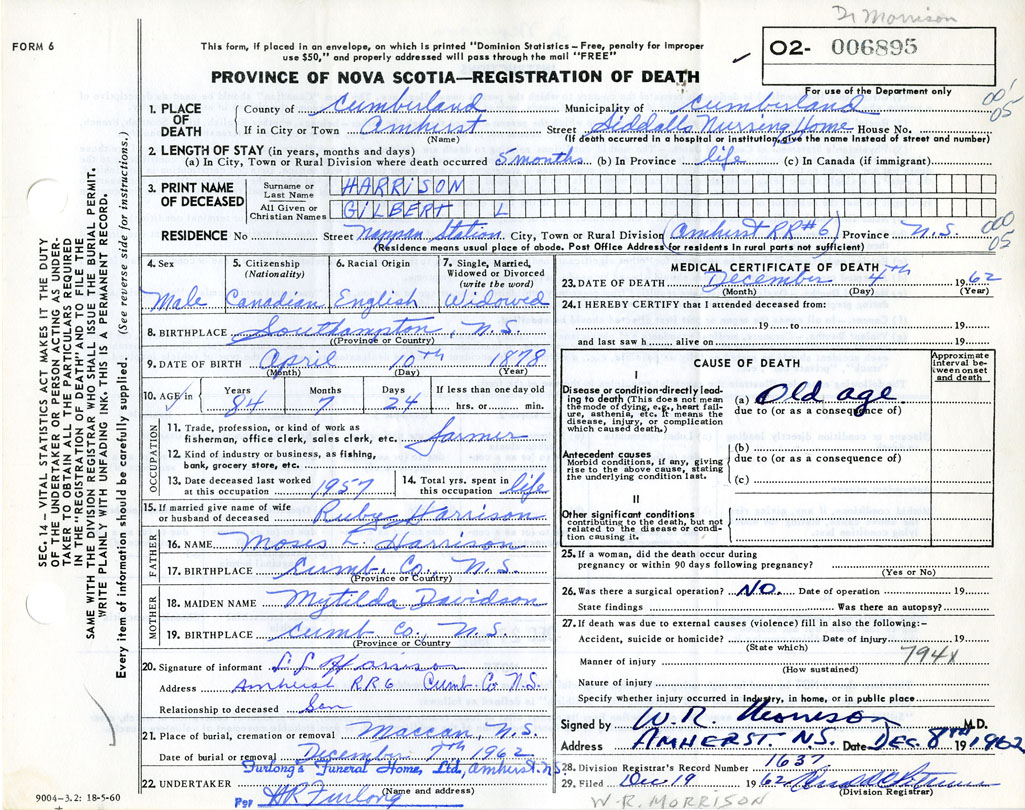 Dr Morrison
FORM 6
This form, if placed in an envelope, on which is printed "Dominion Statistics – Free, penalty for improper
use $50," and properly addressed will pass through the mail "FREE"
O2- 006895
For use of the Department only
PROVINCE OF NOVA SCOTIA—REGISTRATION OF DEATH
SEC. 14 – VITAL STATISTICS ACT MAKES IT THE DUTY
OF THE UNDERTAKER OR PERSON ACTING AS UNDER-
TAKER TO OBTAIN ALL THE PARTICULARS REQUIRED
IN THE "REGISTRATION OF DEATH" AND TO FILE THE
SAME WITH THE DIVISION REGISTRAR WHO SHALL ISSUE THE BURIAL PERMIT.
WRITE PLAINLY WITH UNFADING INK. THIS IS A PERMANENT RECORD.
Every item of information should be carefully supplied. (See reverse side for instructions.)
1. PLACE OF DEATH County of Cumberland Municipality of Cumberland
If in City or Town Amherst Street Siddalls Nursing Home House No.
(Name) (If death occurred in a hospital or institution, give the name instead of street and number)
2. LENGTH OF STAY (in years, months and days)
(a) In City, Town or Rural Division where death occurred 5 months (b) In Province life (c) In Canada (if immigrant)
3. PRINT NAME OF DECEASED Surname or Last Name HARRISON
All Given or Christian Names GILBERT L
RESIDENCE No Street Nappan Station City, Town or Rural Division (Amherst RR#6) Province N.S.
(Residence means usual place of abode. Post Office Address for residents in rural parts not sufficient)
4. Sex 5. Citizenship (Nationality) 6. Racial Origin 7. Single, Married, Widowed or Divorced (write the word)
Male Canadian English Widowed
8. BIRTHPLACE Southampton, N.S.
(Province or Country)
9. DATE OF BIRTH April 10th 1878
(Month) (Day) (Year)
10. AGE in Years Months Days If less than one day old
84 7 24 hrs. or min.
OCCUPATION
11. Trade, profession or kind of work as
fisherman, office clerk, sales clerk, etc. farmer
12. Kind of industry or business, as fishing,
bank, grocery store, etc.
13. Date deceased last worked at this occupation 1957 14. Total yrs. spent in this occupation life
15. If married give name of wife
or husband of deceased Ruby Harrison
FATHER
16. NAME Moses L. Harrison
17. BIRTHPLACE Cumb. Co., N.S.
(Province or Country)
MOTHER
18. MAIDEN NAME Mytilda Davidson
19. BIRTHPLACE Cumb Co., N.S.
(Province or Country)
20. Signature of informant L L Harrison
Address Amherst RR6 Cumb. Co N.S.
Relationship to deceased Son
21. Place of burial, cremation or removal Maccan, N.S.
Date of burial or removal December 7th 1962
22. UNDERTAKER Furlong's Funeral Home, Ltd, Amherst. N.S
(Name and address)
Per HR Furlong
9004-3.2: 18-5-60
MEDICAL CERTIFICATE OF DEATH
23. DATE OF DEATH December 4th 1962
(Month) (Day) (Year)
24. I HEREBY CERTIFY that I attended deceased from:
19 to 19
and last saw h alive on 19
CAUSE OF DEATH
Approximate interval between onset and death
I
Disease or condition directly lead-
ing to death (This does not mean
the mode of dying, e.g., heart fail-
ure, asthenia, etc. It means the
disease, injury, or complication
which caused death.)
(a) Old age
due to (or as a consequence of)
Antecedent causes
Morbid conditions, if any, giving
rise to the above cause, stating
the underlying condition last.
(b)
due to (or as a consequence of)
(c)
II
Other significant conditions
contributing to the death, but not
related to the disease or condi-
tion causing it.
25. If a woman, did the death occur during
pregnancy or within 90 days following pregnancy?
(Yes or No)
26. Was there a surgical operation? NO. Date of operation 19
State findings Was there an autopsy?
27. If death was due to external causes (violence) fill in also the following:–
Accident, suicide or homicide? Date of injury 19
(State which)
Manner of injury 794x
(How sustained)
Nature of injury
Specify whether injury occurred in Industry, in home, or in public place
Signed by W.R. Morrison M.D.
Address AMHERST. N.S. Date DEC. 8TH 19 1962
28. Division Registrar's Record Number 1637
29. Filed Dec 19 1962
(Division Registrar)
W.R. MORRISON